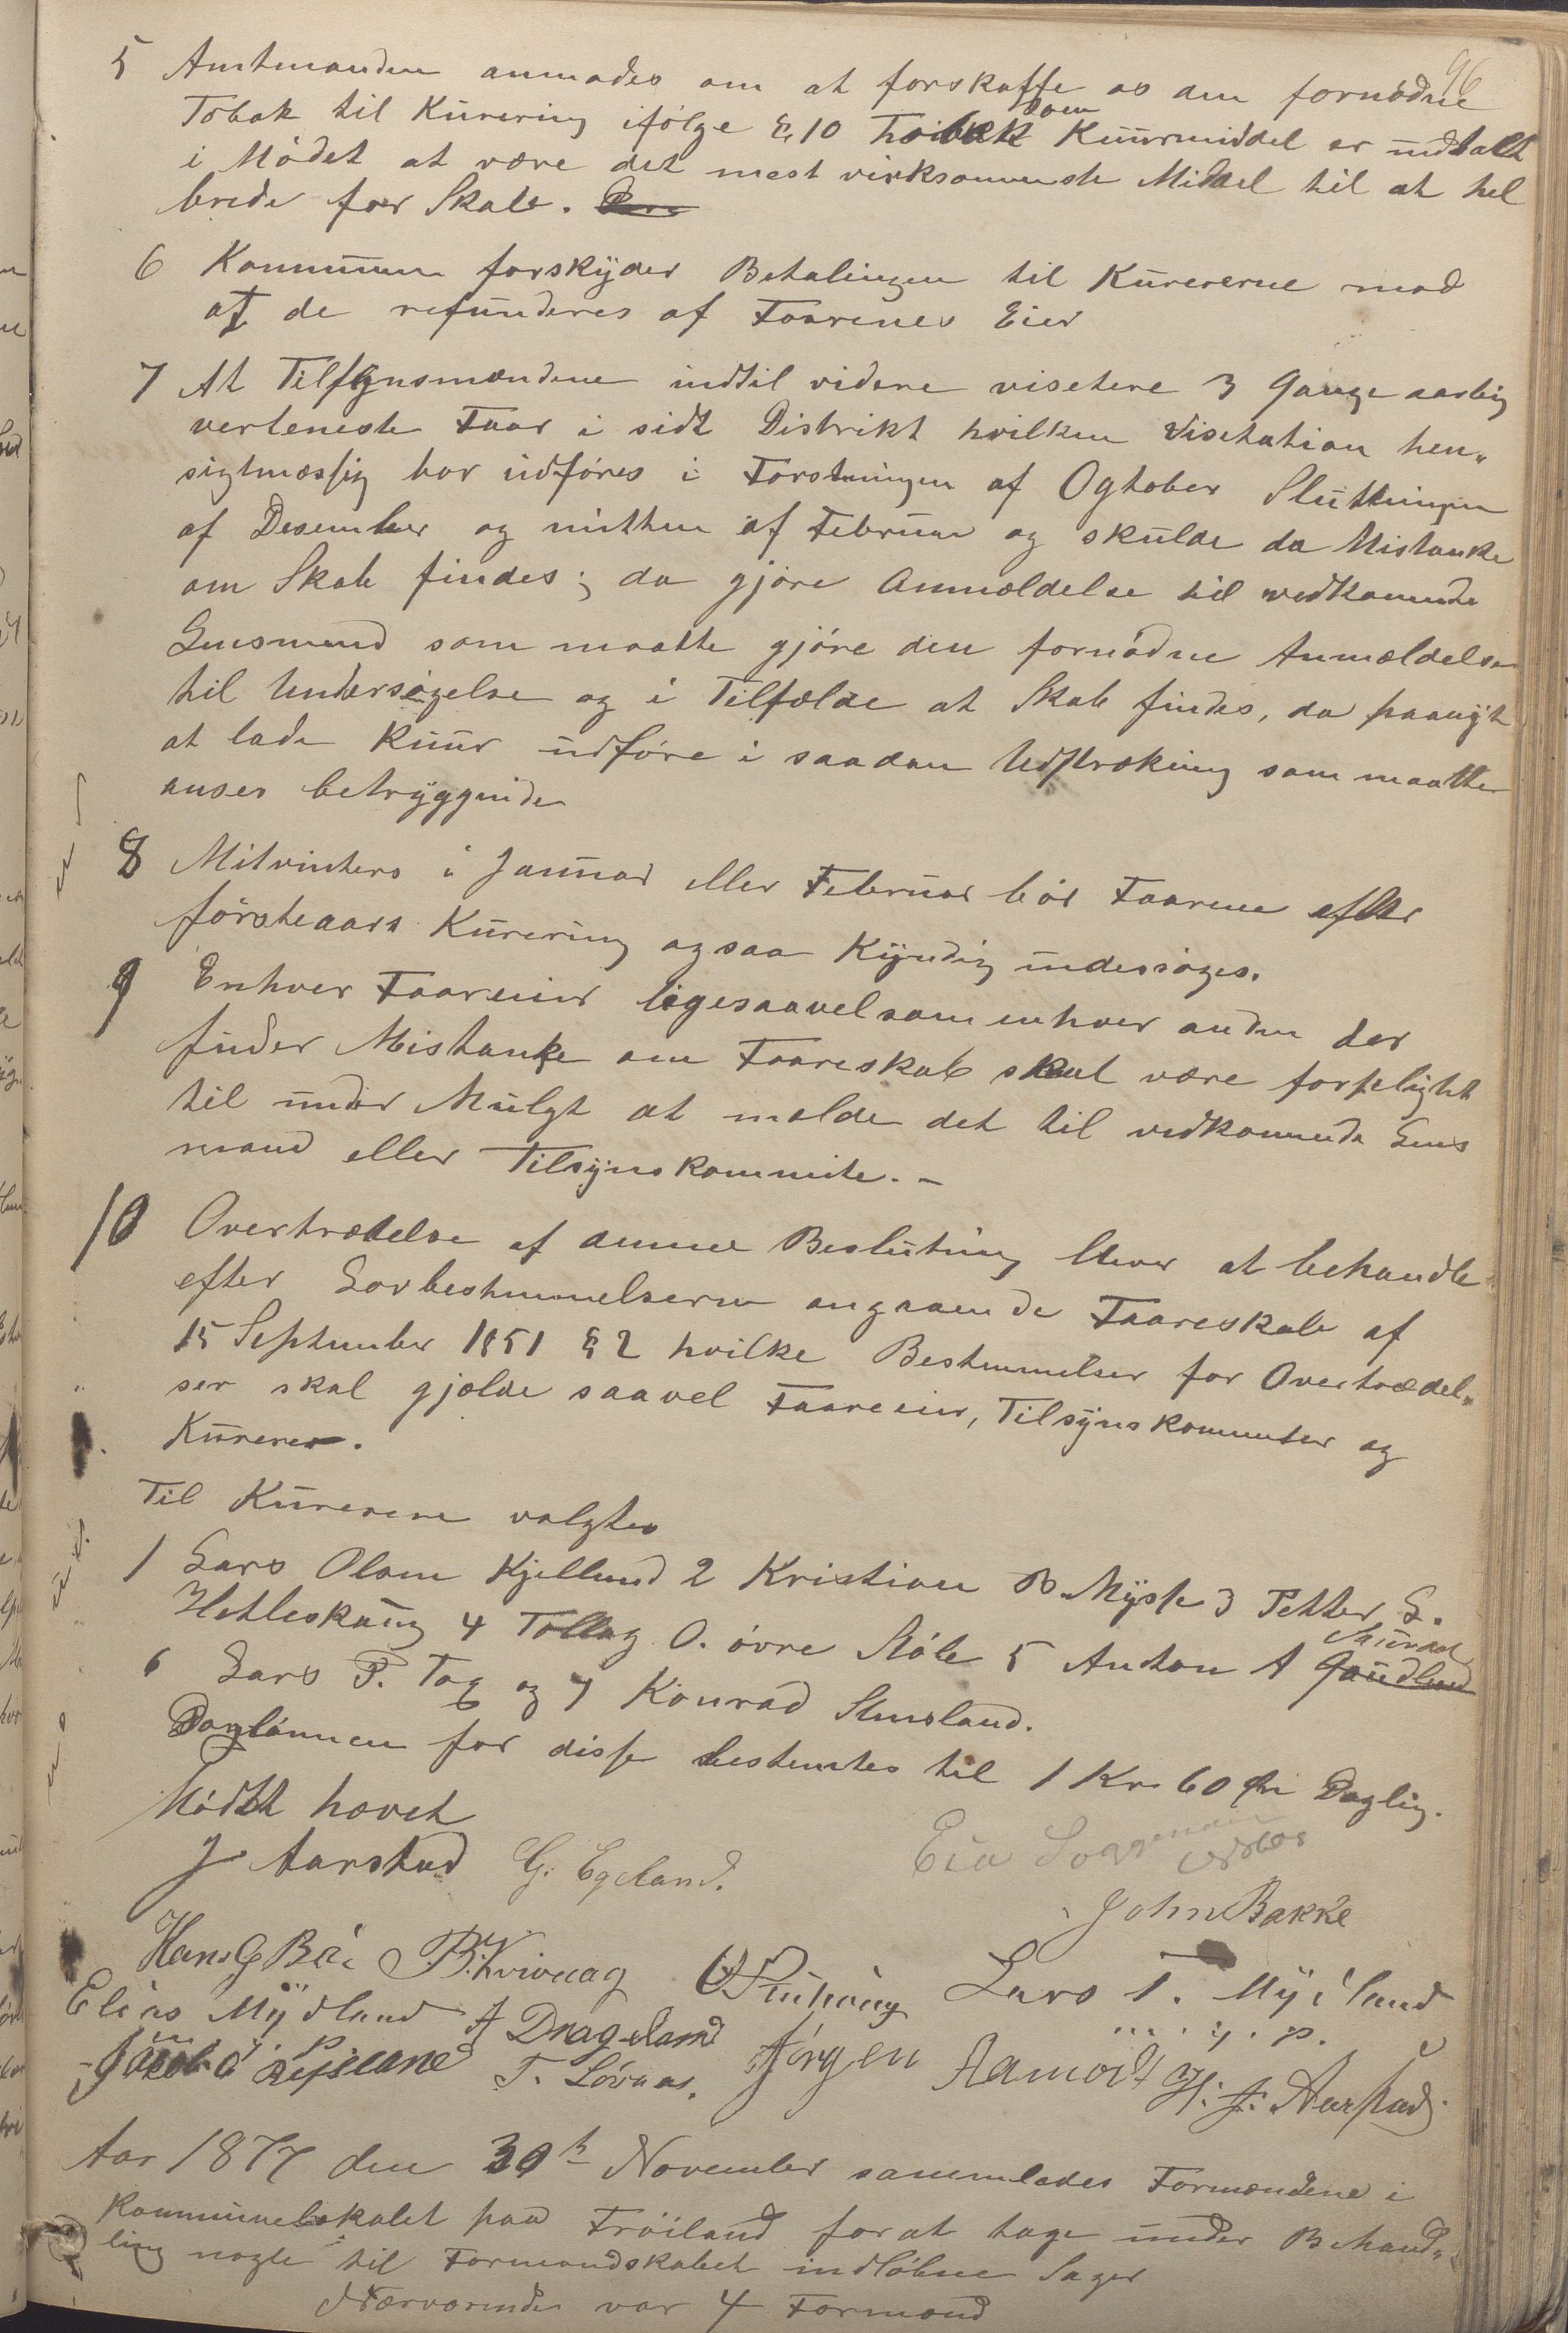 96
5 Amtmanden anmodes om at forskaffe os den fornødne
Tobak til Kurering ifølge § 10 Tobak som Kuurmiddel er udtalt
i Mødet at være det mest virksommste Middel til at hel
brede for Skab.
6 Kommunen forskyder Betalingen til Kurererne mod
at de refunderes af Faarenes Eier
7 At Tilsynsmændene indtil videre visetere 3 Gange aarlig
verteneste Faar i sidt Distrikt hvilken Visetation hen„
sigtmæssig bør udføres i Førstningen af Ogtober Sluttningen
af Desember og mitten af Februar og skulde da Mistanke
om Skab findes; da gjøre Anmældelse til vedkomende
Lensmend som maatte gjøre den fornødne Anmældelse
til Undersøgelse og i Tilfælde at Skab findes, da paanyt
at lade Kuur udføre i saadan Udstrækning som maatte
anses betryggende
8 Mitvinters i Januar eller Februar bør Faarene efter
førsteaars Kurering ogsaa Kyndig undersøges.
9 Enhver Faareeier ligesaavel som enhver anden der
finder Mistanke om Faareskab skal være forpligtet
til under Mulgt at melde det til vedkommende Lens
mand eller Tilsynskommite. -
10 Overtrædelse af denne Beslutning bliver at behandle
efter Lovbestemmelserne angaaende Faareskab af
15 September 1851 § 2 hvilke Bestemmelser for Overtrædel„
ser skal gjælde saavel Faareeier, Tilsynskommiteer og
Kurerer.
Til Kurerere valgtes
1 Lars Olsen Kjellund 2 Kristian B. Myse 3 Petter L.
Hetleskoug 4 Tollag O. øvre Støle 5 Anton A Saurdal
6 Lars P. Tag og 7 Konrad Stensland.
Daglønnen for disse bestemtes til 1 Kr. 60 Øre Daglig.
Mødet hævet
J Aarstad G. Egeland. Eia
John Bakke
Hans G Bøe B. Kvivaag Lars T. Myiland
Elias Mydland A Drageland
m. i. p.
Jakob T. Løvaas. Jørgen Aamodt H. J. Aarstad.
Aar 1877 den 30te November sammlades Formændene i
Kommunelokalet paa Frøiland for at tage under Behand„
ling nogle til Formandskabet indløbne Sager
Nærværende var 4 Formænd